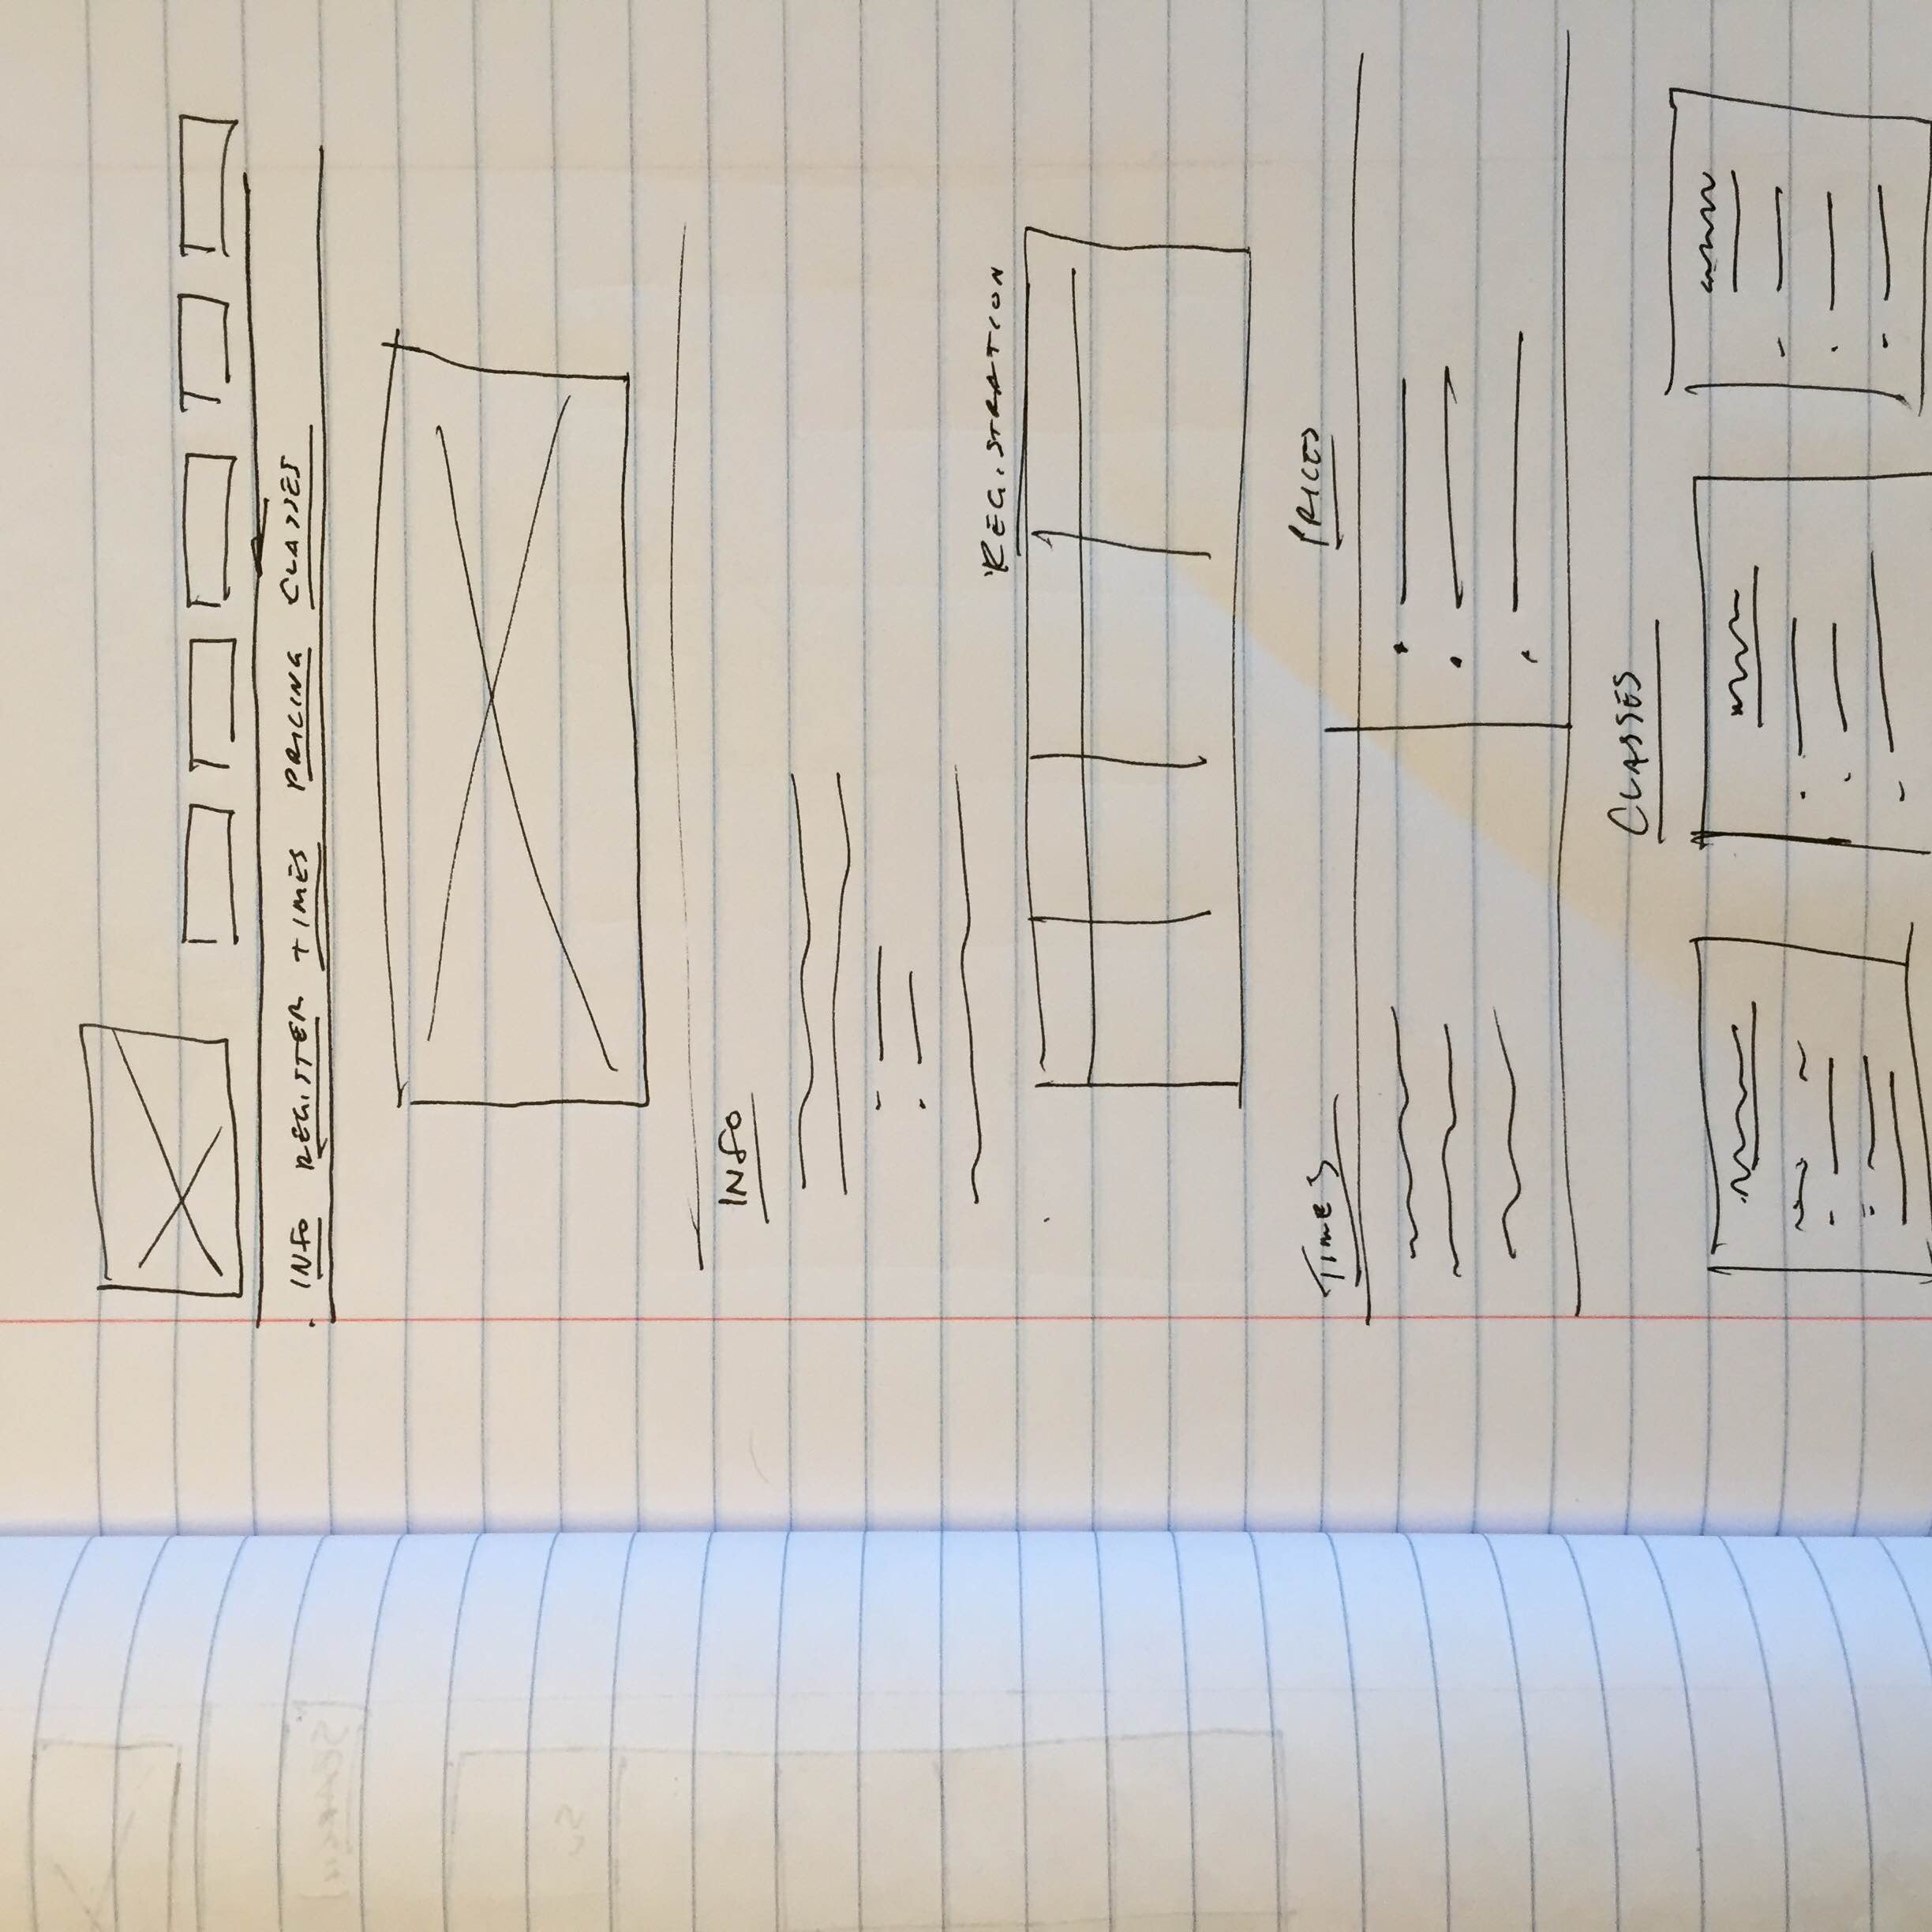 INFO REGISTER TIMES PRICING CLASSES
INFO
REGISTRATION
TIMES
PRICES
CLASSES